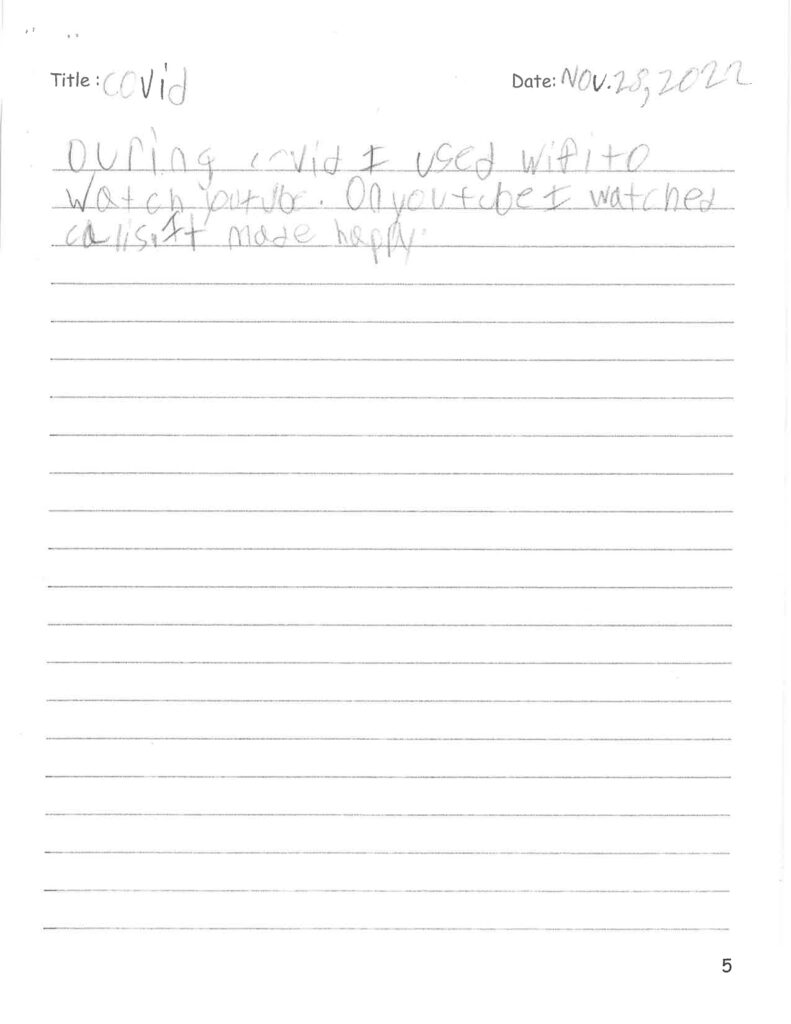 Title : covid
Date: Nov. 28, 2022
During covid I used wifi to
watch youtube. On youtube I watched
It made happy.
5